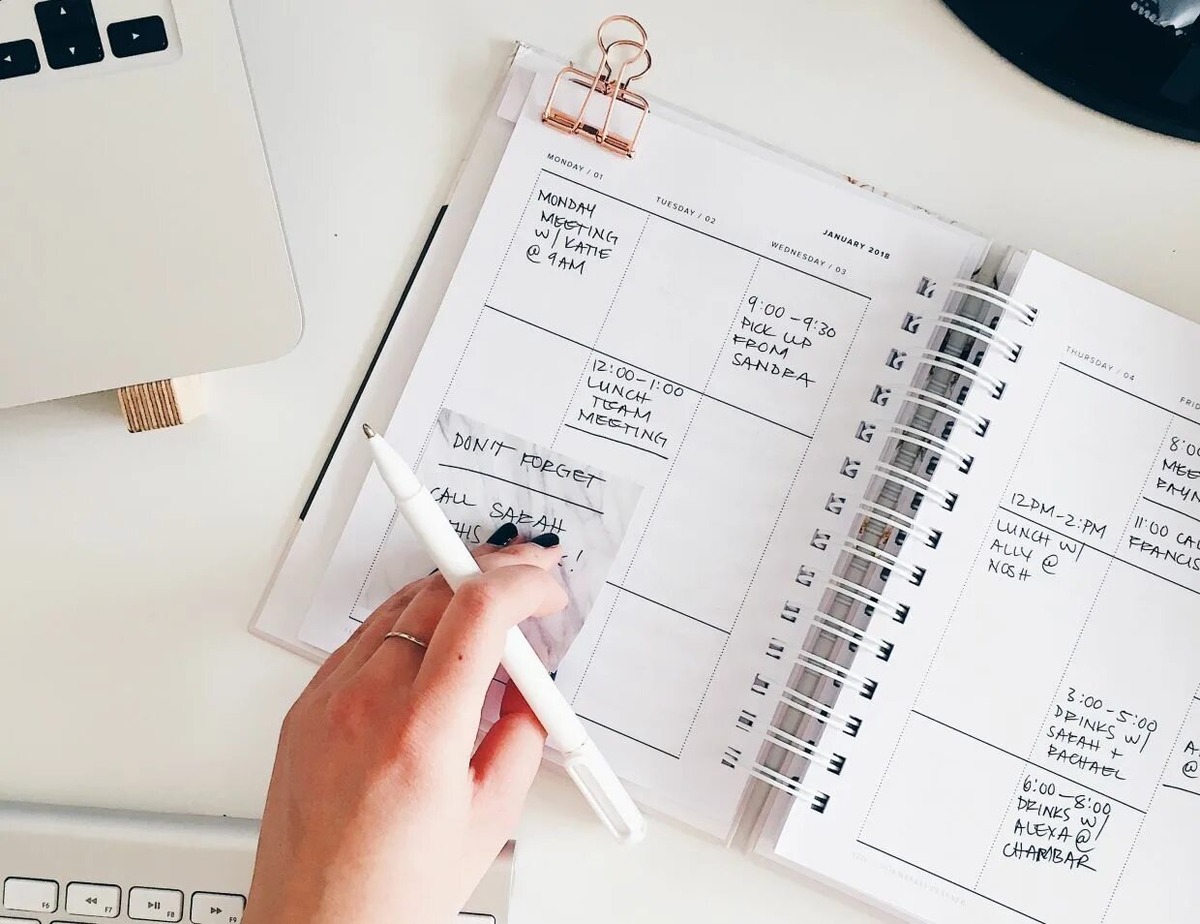 MONDAY / 01
TUESDAY / 02
JANUARY 2018
WEDNESDAY / 03
MONDAY
MEETING
W/ KATIE
@ 9AM
9:00-9:30
PICK UP
FROM
SANDRA
12:00-1:00
LUNCH
TEAM
MEETING
DON'T FORGET
CALL SARAH
!
THURSDAY / 04
12PM-2:PM
LUNCH W/
ALLY @
NOSH
8:00
11:00
3:00-5:00
DRINKS W/
SARAH +
RACHAEL
6:00-8:00
DRINKS W/
ALEXA @
CHAMBAR
@
F6
F7
F8
F9